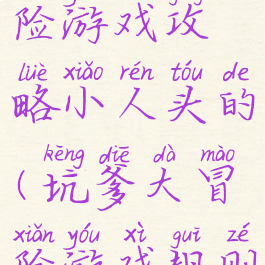 险游戏攻
lüè xiǎo rén tóu de
略小人头的
kēng diē dà mào
(坑爹大冒
xiǎn yóu xì guī zé
险游戏规则